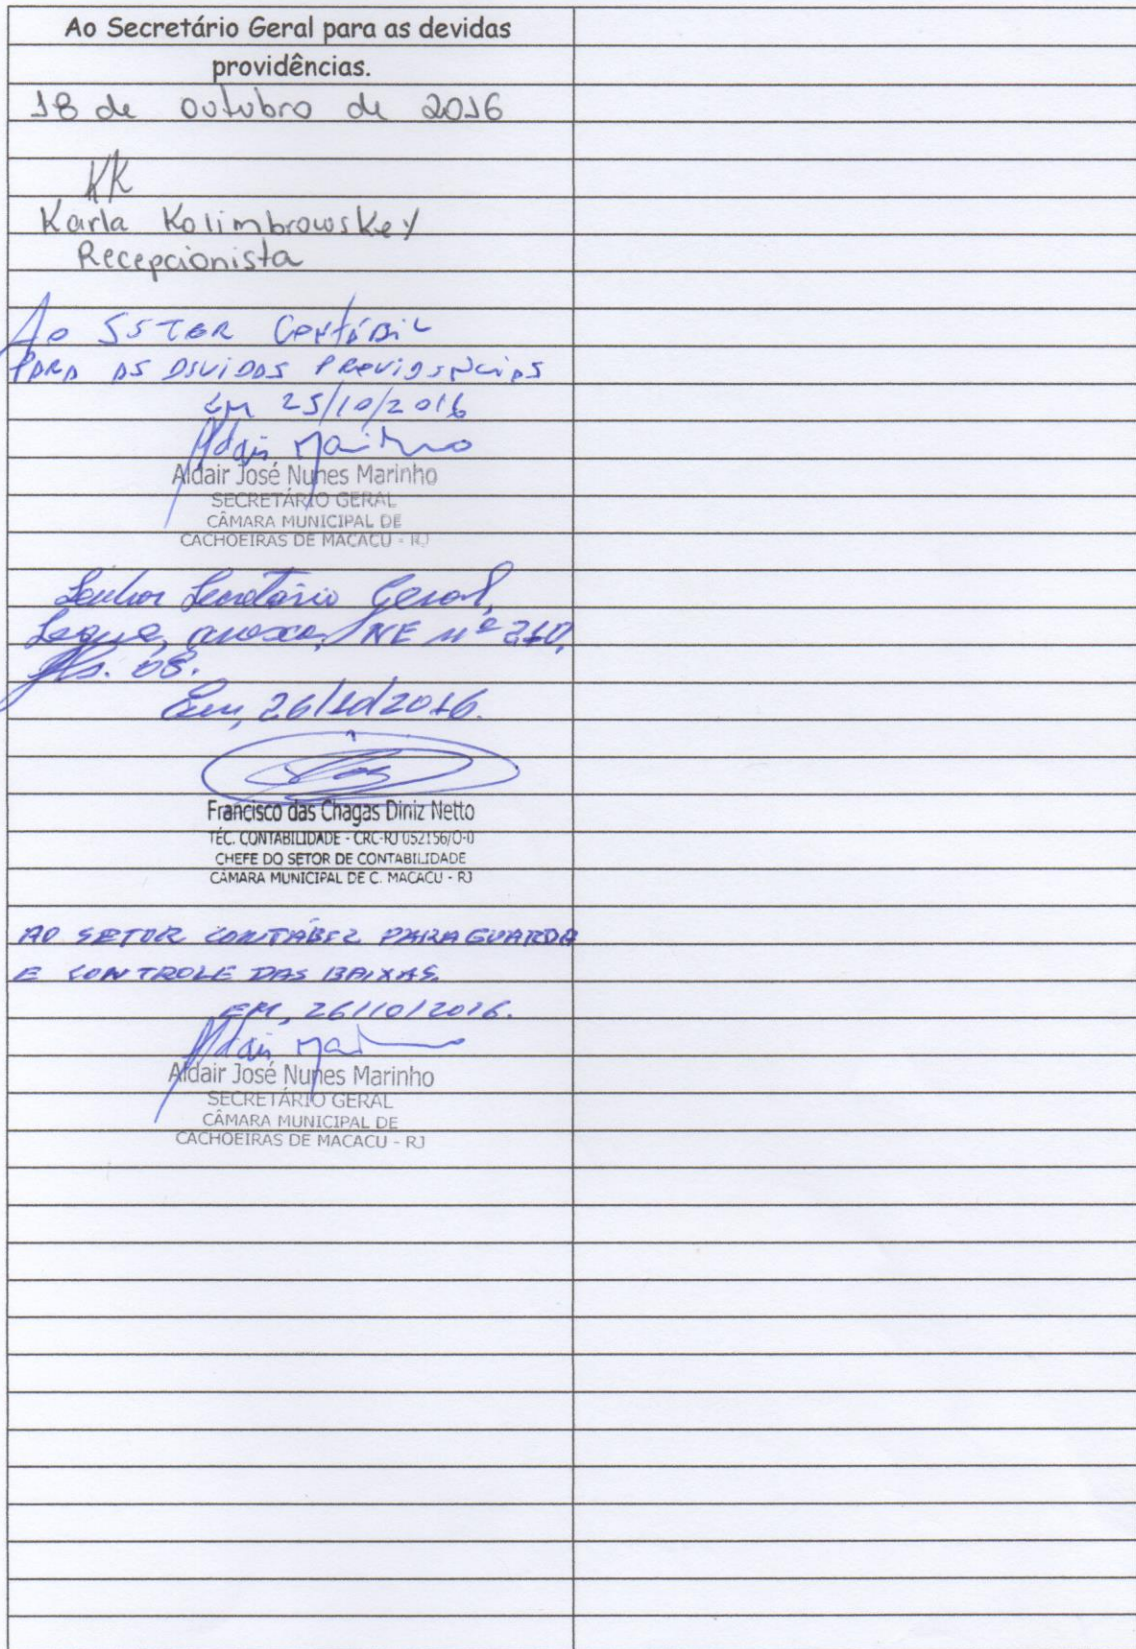 Ao Secretário Geral para as devidas
providências.
18 de outubro de 2016
KK
Karla Kolimbrowskey
Recepcionista
Ao SSTOR Contábil
PARA AS DEVIDAS PROVIDÊNCIAS
Em 25/10/2016
Aldair Marinho
Aldair José Nunes Marinho
SECRETÁRIO GERAL
CÂMARA MUNICIPAL DE
CACHOEIRAS DE MACACU - RJ
Senhor Secretário Geral,
Segue, anexa, NE nº 210,
fls. 08.
Em, 26/10/2016.
Francisco das Chagas Diniz Netto
TÉC. CONTABILIDADE - CRC-RJ 052156/O-0
CHEFE DO SETOR DE CONTABILIDADE
CÂMARA MUNICIPAL DE C. MACACU - RJ
AO SETOR CONTÁBIL PARA GUARDA
E CONTROLE DAS BAIXAS.
EM, 26/10/2016.
Aldair Mar
Aldair José Nunes Marinho
SECRETÁRIO GERAL
CÂMARA MUNICIPAL DE
CACHOEIRAS DE MACACU - RJ